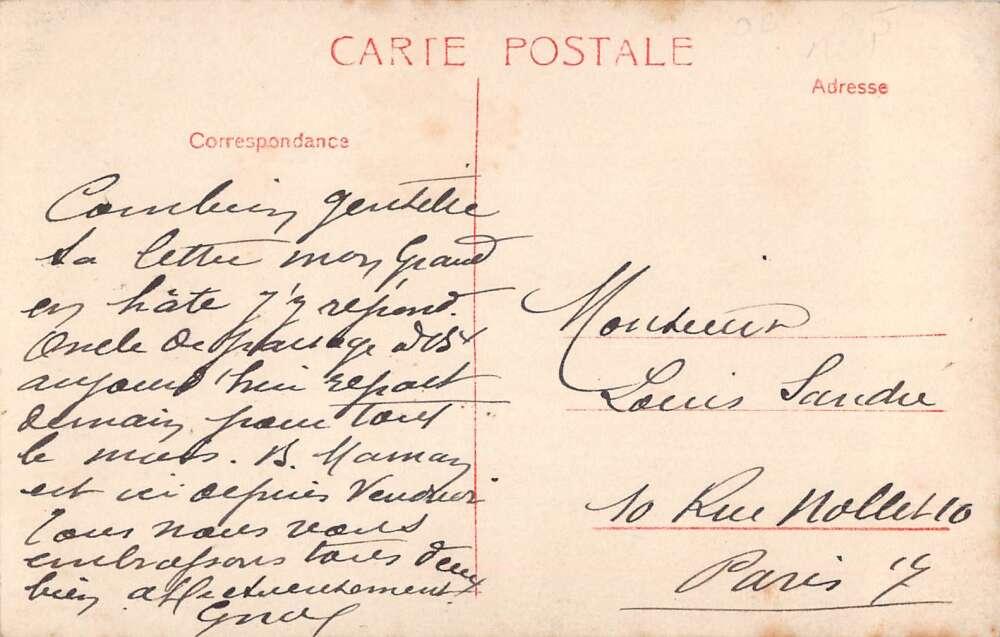 CARTE POSTALE
Correspondance
Adresse
Combien gentille
ta lettre mon Grand
en hâte j'y répond.
Oncle de passage
aujourd'hui repart
demain pour tout
le mois. B. Maman
est ici depuis Vendredi
Tous nous vous
embrassons tous deux
bien affectueusement
Monsieur
Louis Sandré
10 Rue Nollet 10
Paris 17